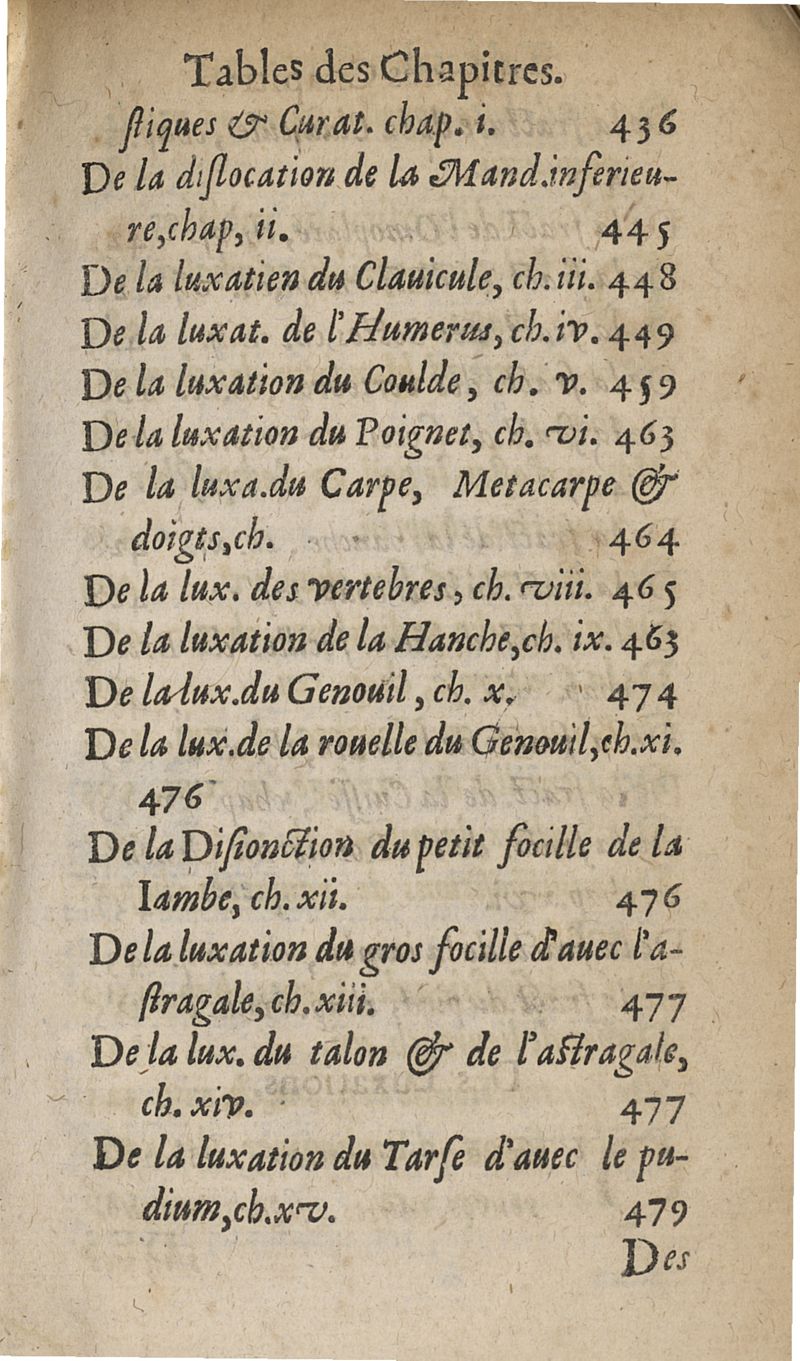 Tables des Chapitres.
ſtiques & Curat. chap. i. 436
De la diſlocation de la Mand.inferieu-
re,chap, ii. 445
De la luxatien du Clauicule, ch.iii. 448
De la luxat. de l'Humerus, ch.iv. 449
De la luxation du Coulde, ch. v. 459
De la luxation du Poignet, ch. vi. 463
De la luxa.du Carpe, Metacarpe &
doigts,ch. 464
De la lux. des vertebres, ch. viii. 465
De la luxation de la Hanche,ch. ix. 463
De la lux.du Genouil, ch. x. 474
De la lux.de la rouelle du Genouil,ch.xi.
476
De la Diſionction du petit focille de la
Iambe, ch. xii. 476
De la luxation du gros focille d'auec l'a-
ſtragale,ch.xiii. 477
De la lux. du talon & de l'aſtragale,
ch. xiv. 477
De la luxation du Tarſe d'auec le pu-
dium,ch.xv. 479
Des